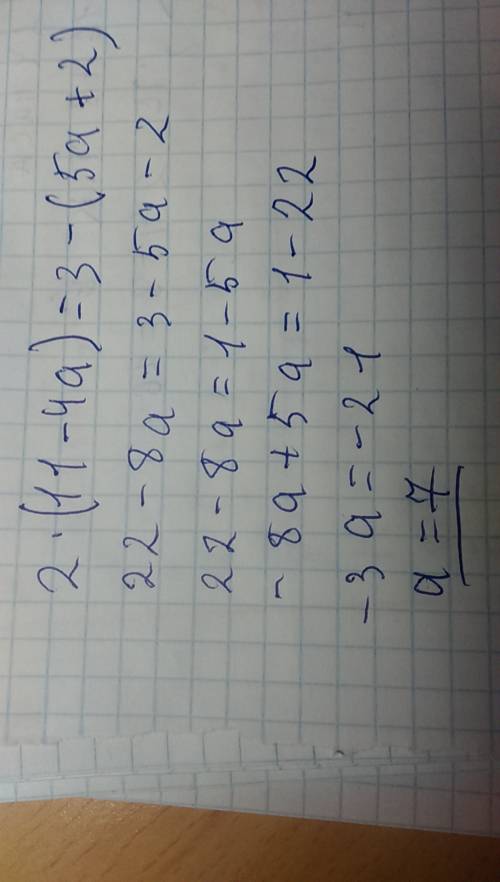 2·(11-4a)=3-(5a+2)
22-8a=3-5a-2
22-8a=1-5a
-8a+5a=1-22
-3a=-21
a=7